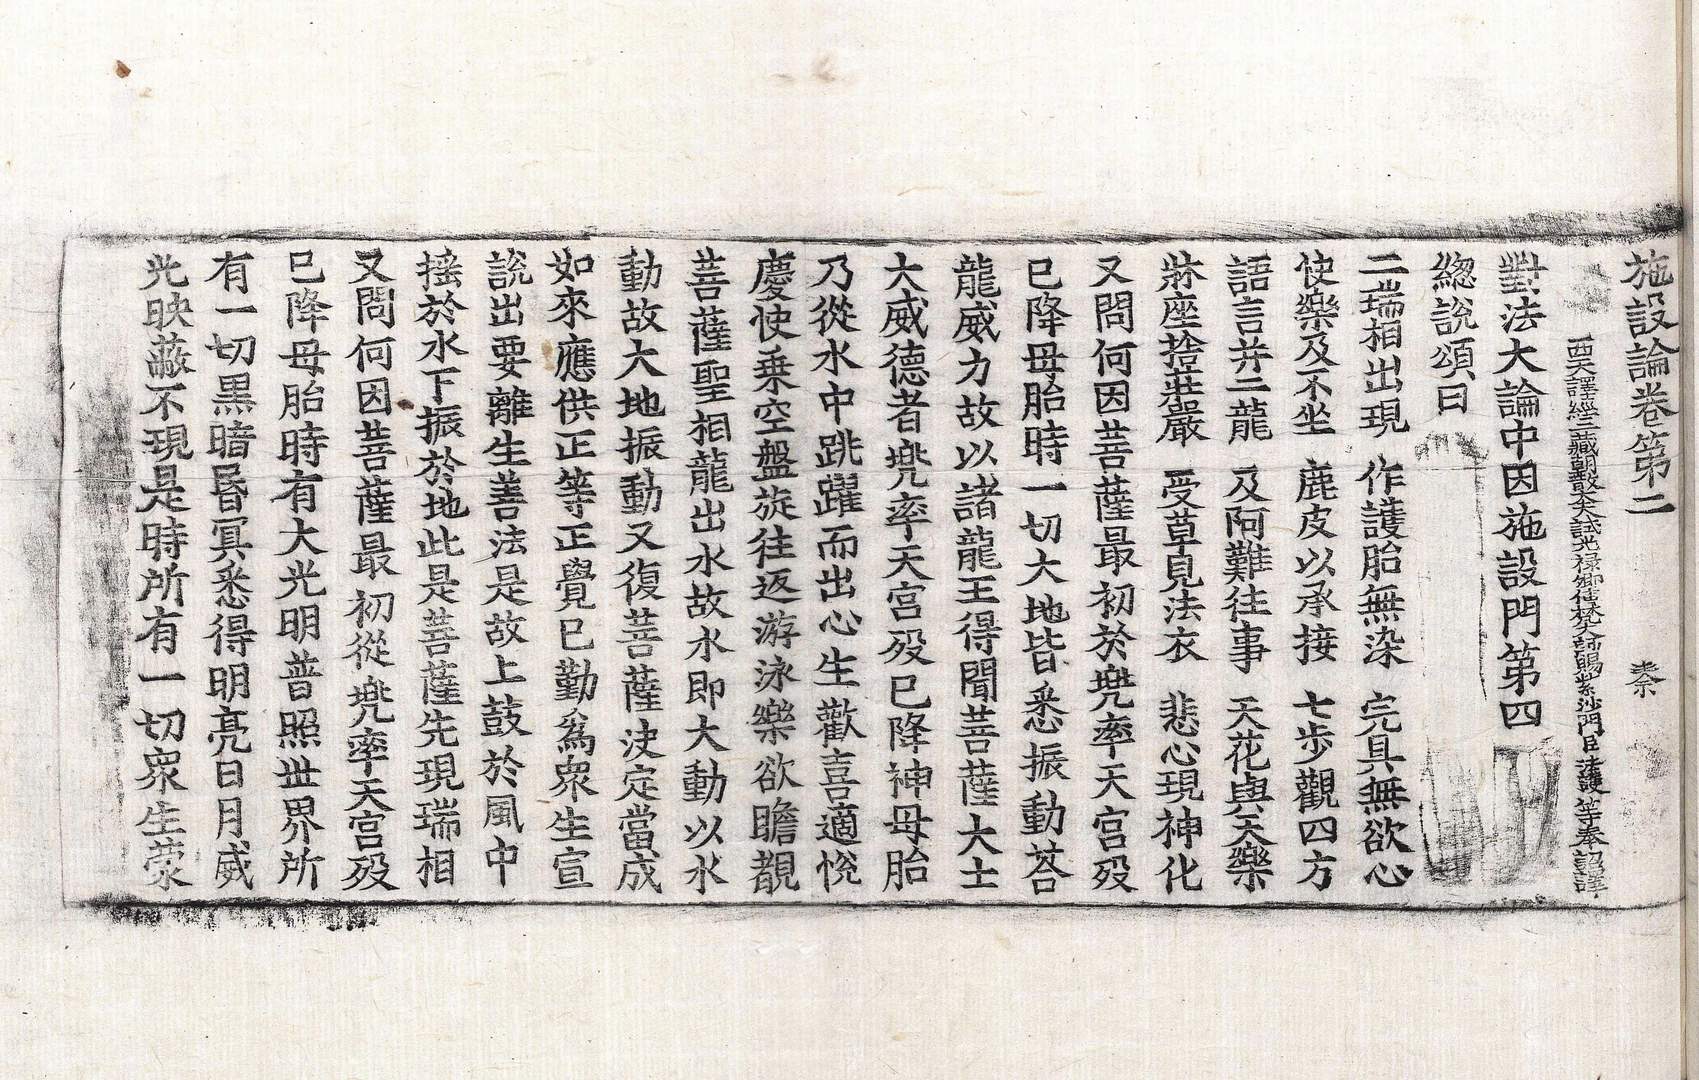 施設論卷第二 柰
西天譯經三藏朝散大夫試光祿卿傳梵大師賜紫沙門臣法護等奉詔譯
對法大論中因施設門第四
緫說頌曰
二瑞相出現 作護胎無染 完具無欲心
使樂及不坐 鹿皮以承接 七步觀四方
語言并二龍 及阿難往事 天花與天樂
牀座捨莊嚴 受草見法衣 悲心現神化
又問何因菩薩最初於兠率天宮殁
已降母胎時一切大地皆悉振動荅
龍威力故以諸龍王得聞菩薩大士
大威德者兠率天宮殁已降神母胎
乃從水中跳躍而出心生歡喜適悅
慶使乗空盤旋往返游泳樂欲瞻覩
菩薩聖相龍出水故水即大動以水
動故大地振動又復菩薩決定當成
如來應供正等正覺已勤為衆生宣
說出要離生善法是故上鼓於風中
摇於水下振於地此是菩薩先現瑞相
又問何因菩薩最初從兠率天宮殁
已降母胎時有大光明普照世界所
有一切黒暗昬冥悉得明亮日月威
光映蔽不現是時所有一切衆生蒙